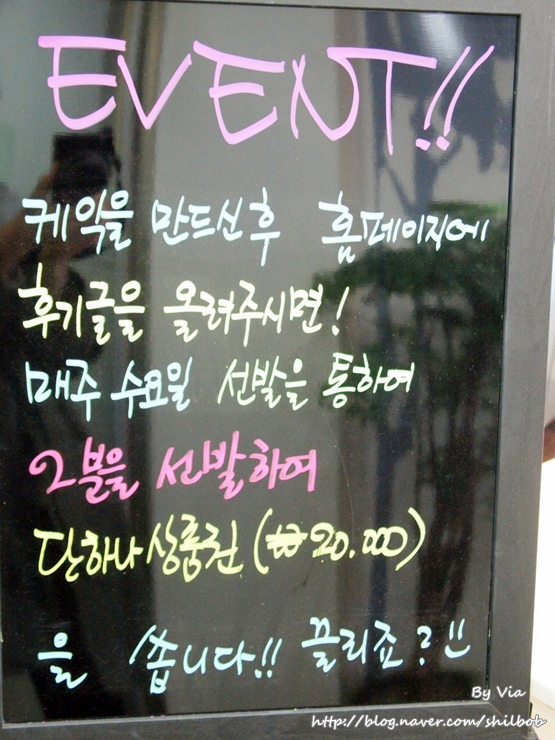 EVENT!!
케익을 만드신 후 홈페이지에
후기글을 올려주시면!
매주 수요일 선발을 통하여
2분을 선발하여
단하나 상품권 (₩20.000)
을 쏩니다!! 끌리죠?!!
By Via
http://blog.naver.com/shilbob